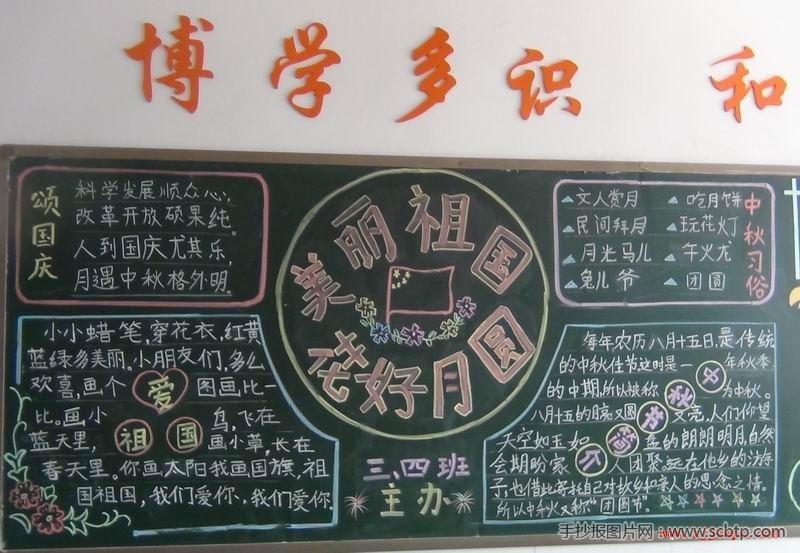 博学多识 和
颂国庆
科学发展顺众心,
改革开放硕果纯。
人到国庆尤其乐,
月遇中秋格外明。
美丽祖国
花好月圆
文人赏月
吃月饼
民间拜月
玩花灯
月光马儿
午火龙
兔儿爷
团圆
中秋习俗
小小蜡笔,穿花衣,红黄
蓝绿多美丽。小朋友们,多么
欢喜,画个 图画比一
比。画,小 鸟,飞在
蓝天里, 画小草,长在
春天里。你画,太阳我画国旗,祖
国祖国,我们爱你,我们爱你。
爱
祖国
三、四班
主办
每年农历八月十五日,是传统
的中秋佳节这时是一 年秋季
的中期,所以被称 为中秋。
八月十五的月亮又圆 又亮,人们仰望
天空如玉如 的朗朗明月,自然
会期盼家 人团聚。远在他乡的游
子,也借此寄托自己对故乡和亲人的思念之情。
所以中秋又称“团圆节”。
中秋节简介
手抄报图片网:www.scbtp.com